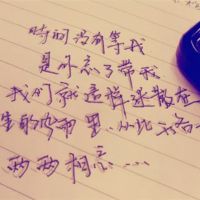 时间没有等我
是你忘了带我
我们就这样迷散在
生的
里.从此
两两相忘……